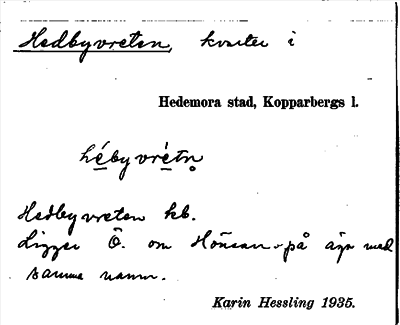 Hedbyvreten, kvarter i
Hedemora stad, Kopparbergs l.
hébyvrétn̥
Hedbyvreten kb.
Ligger Ö. om Hönsan på äga med
samma namn.
Karin Hessling 1935.